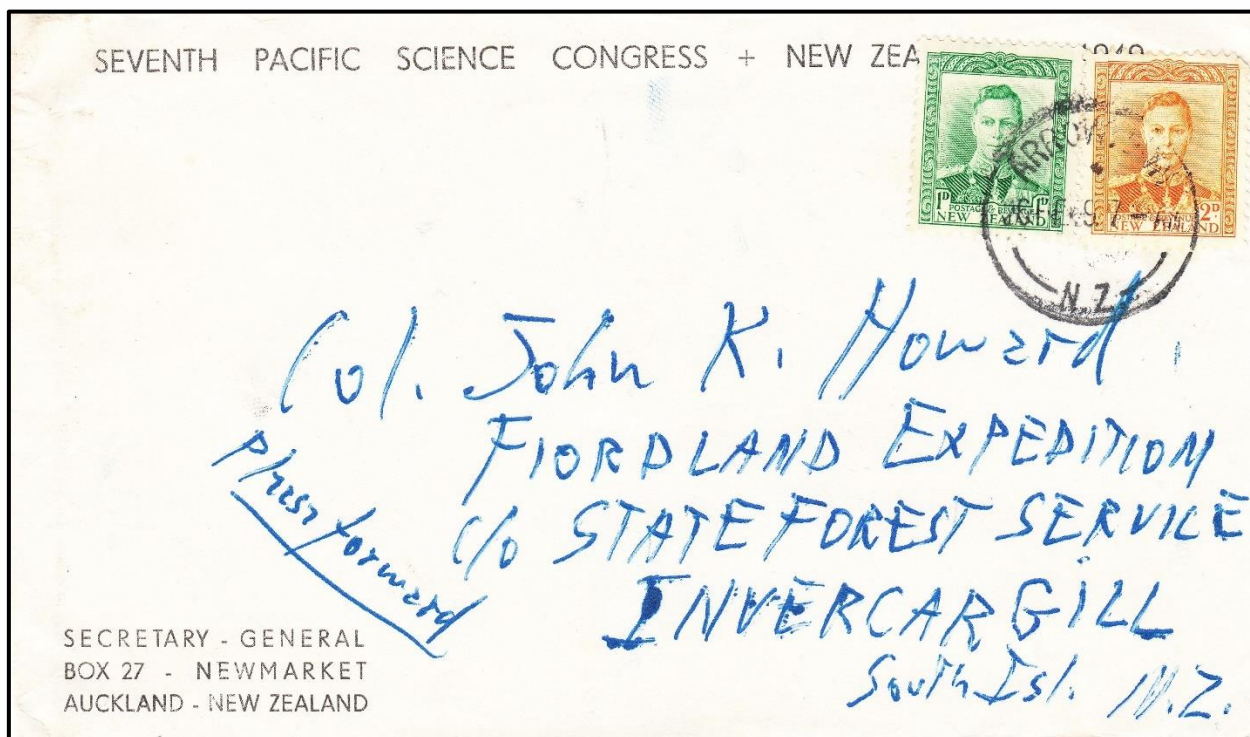 SEVENTH PACIFIC SCIENCE CONGRESS + NEW ZEA 1949
1D POSTAGE & REVENUE 1D
NEW ZEALAND
2D
NEW ZEALAND
ARROW
N.Z
Col. John K. Howard
FIORDLAND EXPEDITION
c/o STATE FOREST SERVICE
INVERCARGILL
South Isl. N.Z.
Please forward
SECRETARY - GENERAL
BOX 27 - NEWMARKET
AUCKLAND - NEW ZEALAND